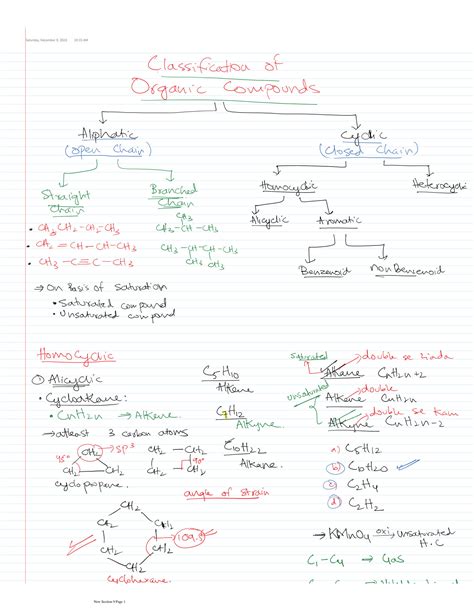 Saturday, December 9, 2023 10:15 AM
Classification of
Organic Compounds
Aliphatic
(open Chain)
Cyclic
(closed Chain)
Straight
Chain
Branched
Chain
Homocyclic
Heterocyclic
CH3
• CH3 CH2-CH2-CH3
CH3-CH-CH3
Alicyclic
Aromatic
• CH2 = CH-CH-CH3
CH3-CH-CH-CH3
CH3 CH3
• CH3 -C≡C-CH3
Benzenoid
non Benzenoid
→ On Basis of Saturation
• Saturated compound
• Unsaturated compound
HomoCyclic
① Alicyclic
• Cycloalkane:
• CnH2n → Alkene.
→ atleast 3 carbon atoms
CH2 → SP3
CH2 CH2
cyclopropane.
CH2 - CH2
CH2 - CH2
90°
C5H10
Alkene
C7H12
Alkyne.
Alkane.
angle of strain
CH2
CH2
CH2
CH2
CH2
CH2
109.5
Cyclohexane
saturated
unsaturated
Alkane CnH2n+2
→ double se zinda
Alkene CnH2n
→ double
Alkyne CnH2n-2
→ double se kam
a) C5H12
b)
c) C2H4
d) C2H2
→ KMnO4 oxi, unsaturated
H.C
C1-C4 → Gas
New Section 9 Page 1